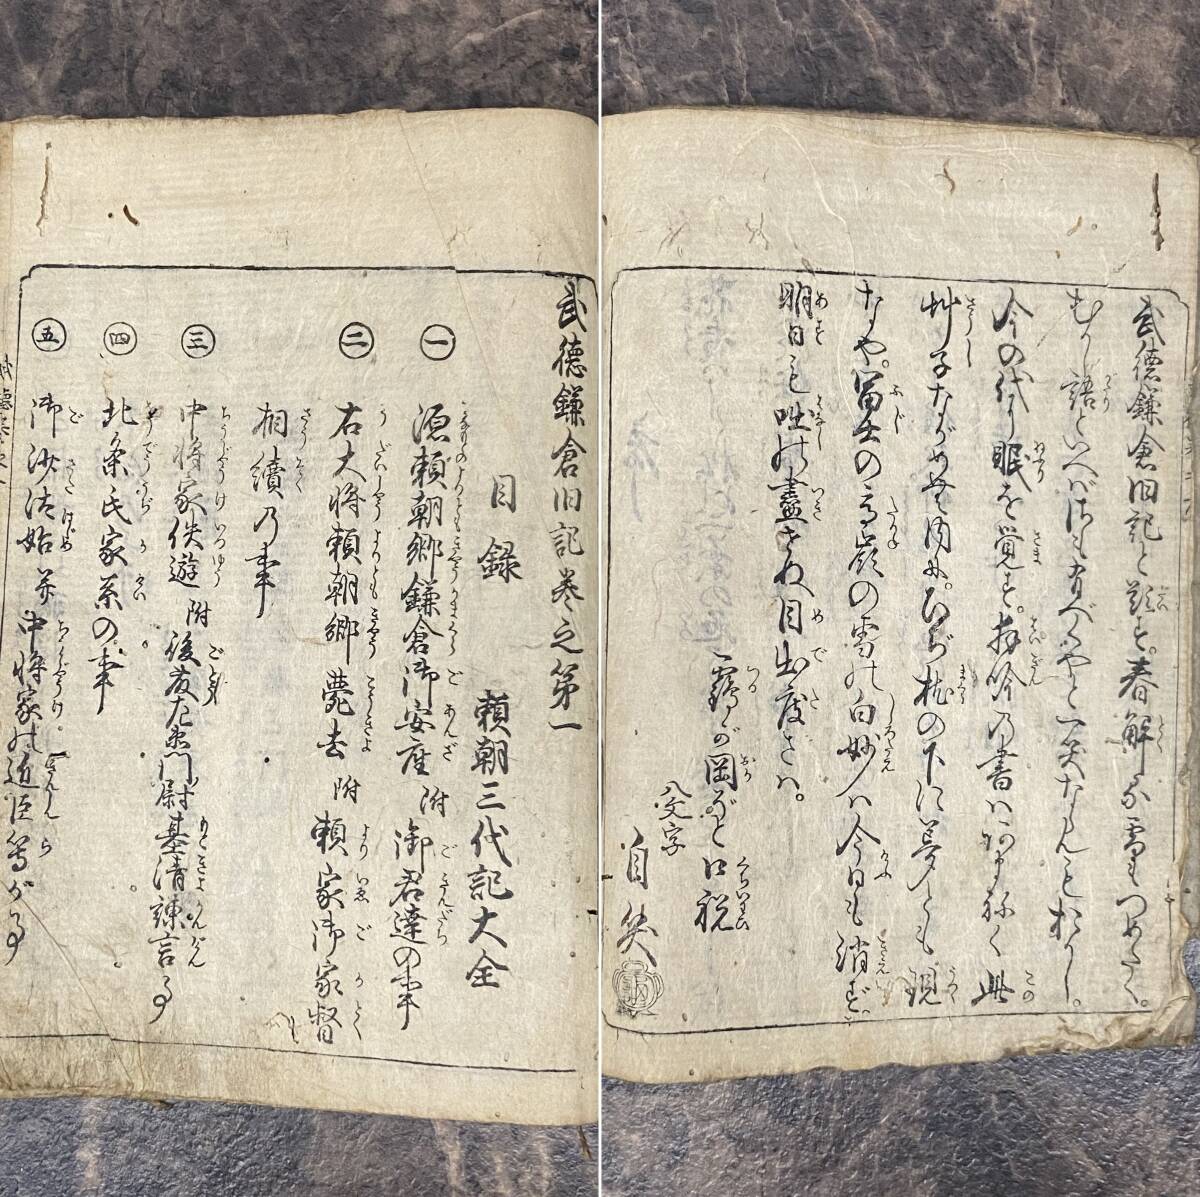 武徳鎌倉旧記と題す。春解る雪もつめたく。
むかし語といへばさも有べくやと一笑ならんもおかし。
今の代の眠を覚す。
艸子ながめせる内に。ひぢ枕の下に夢とも現
なや。冨士の高嶺の雪の白妙は今日も消ず
明日も咄の尽きぬ目出度さは。
靏が岡ほど口祝
八文字
自笑
武徳鎌倉旧記巻之第一
目録 頼朝三代記大全
一 源頼朝郷鎌倉御安座 附 御君達の事
二 右大将頼朝郷薨去 附 頼家御家督
相續の事
三 中将家佚遊 附 後藤左衛門尉基清諌言事
四 北条氏家系の事
五 御沙汰始并中将家の近臣等が事